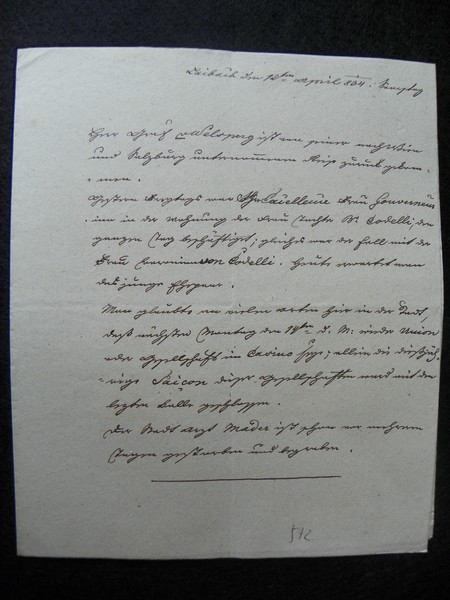 Laibach den 12ten April 834. Samstag
Herr Graf v Welsperg ist von seiner nach Wien
und Salzburg unternommenen Reise zurück gekom-
men.
Gestern Freytags war Ihre Excellenz Frau Gouverneur
inn in der Wohnung der Frau Tochter B. Codelli, den
ganzen Tag beschäftiget; gleiches war der Fall mit der
Frau Baroninn von Codelli. Heute erwartet man
das junge Ehepaar.
Man glaubte an vielen Orten hier in der Stadt,
daß nächsten Montag den 14ten d. M: wieder Union
oder Gesellschaft im Casino sey; allein die dießjäh-
rige Saison dieser Gesellschaften ward mit dem
letzten Balle geschlossen.
Der Stadt Arzt Mader ist schon vor mehrern
Tagen gestorben und begraben.
512